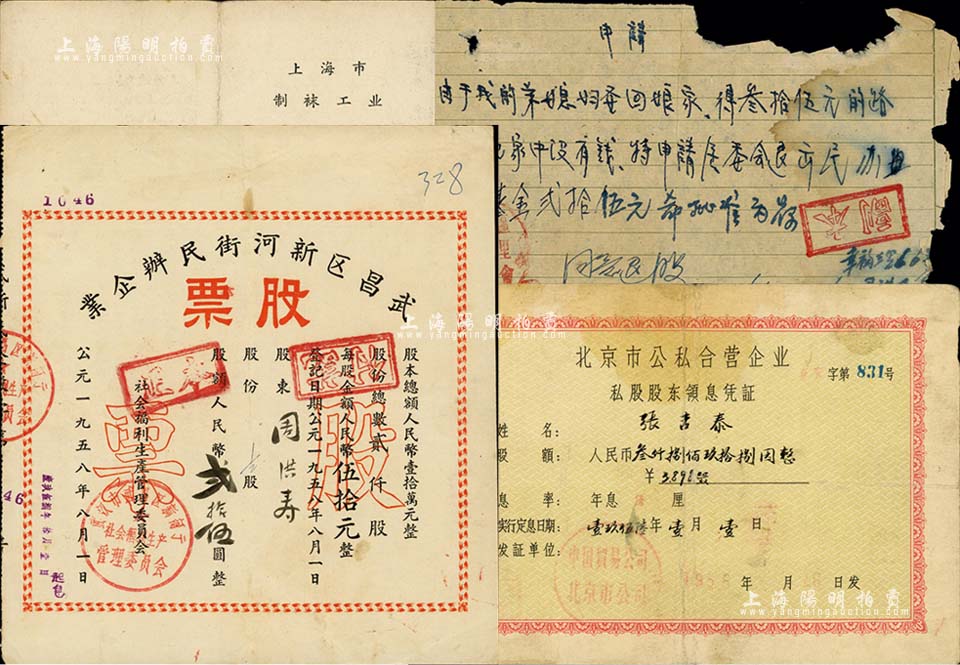 上海陽明拍賣
www.yangmingauction.com
上海市
制袜工业
申請
由于我的弟媳妇要回娘家、得叁拾伍元的路
家中没有錢、特申請居委会退市民办
金弍拾伍元希批准为录
同意退股
1646
328
武昌区新河街民辦企業
股票
股本總額人民幣壹拾萬元整
股份總數貳仟股
每股金額人民幣伍拾元整
登記日期公元一九五八年八月一日
股東 周洪寿
股份 股
股額人民幣弍拾伍圓整
社会福利生産管理委員会
公元一九五八年八月一日
社会福利生产
管理委员会
起息
上海陽明拍賣
www.yangmingauction.com
北京市公私合营企业
字第 831 号
私股股东领息凭证
姓名： 张吉泰
股额： 人民币叁仟捌佰玖拾捌圆整
￥3898
息率： 年息 厘
实行定息日期： 壹玖伍陆年壹月壹日
发证单位：
中国貿易公司
北京市公司
年 月 日发
上海陽明拍賣
www.yangmingauction.com